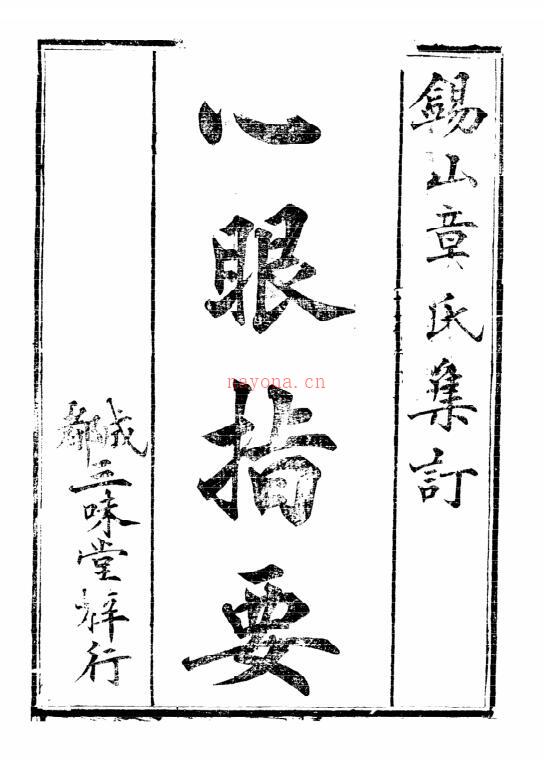 錫山章氏集訂
心眼指要
成都三味堂梓行
nayona.cn